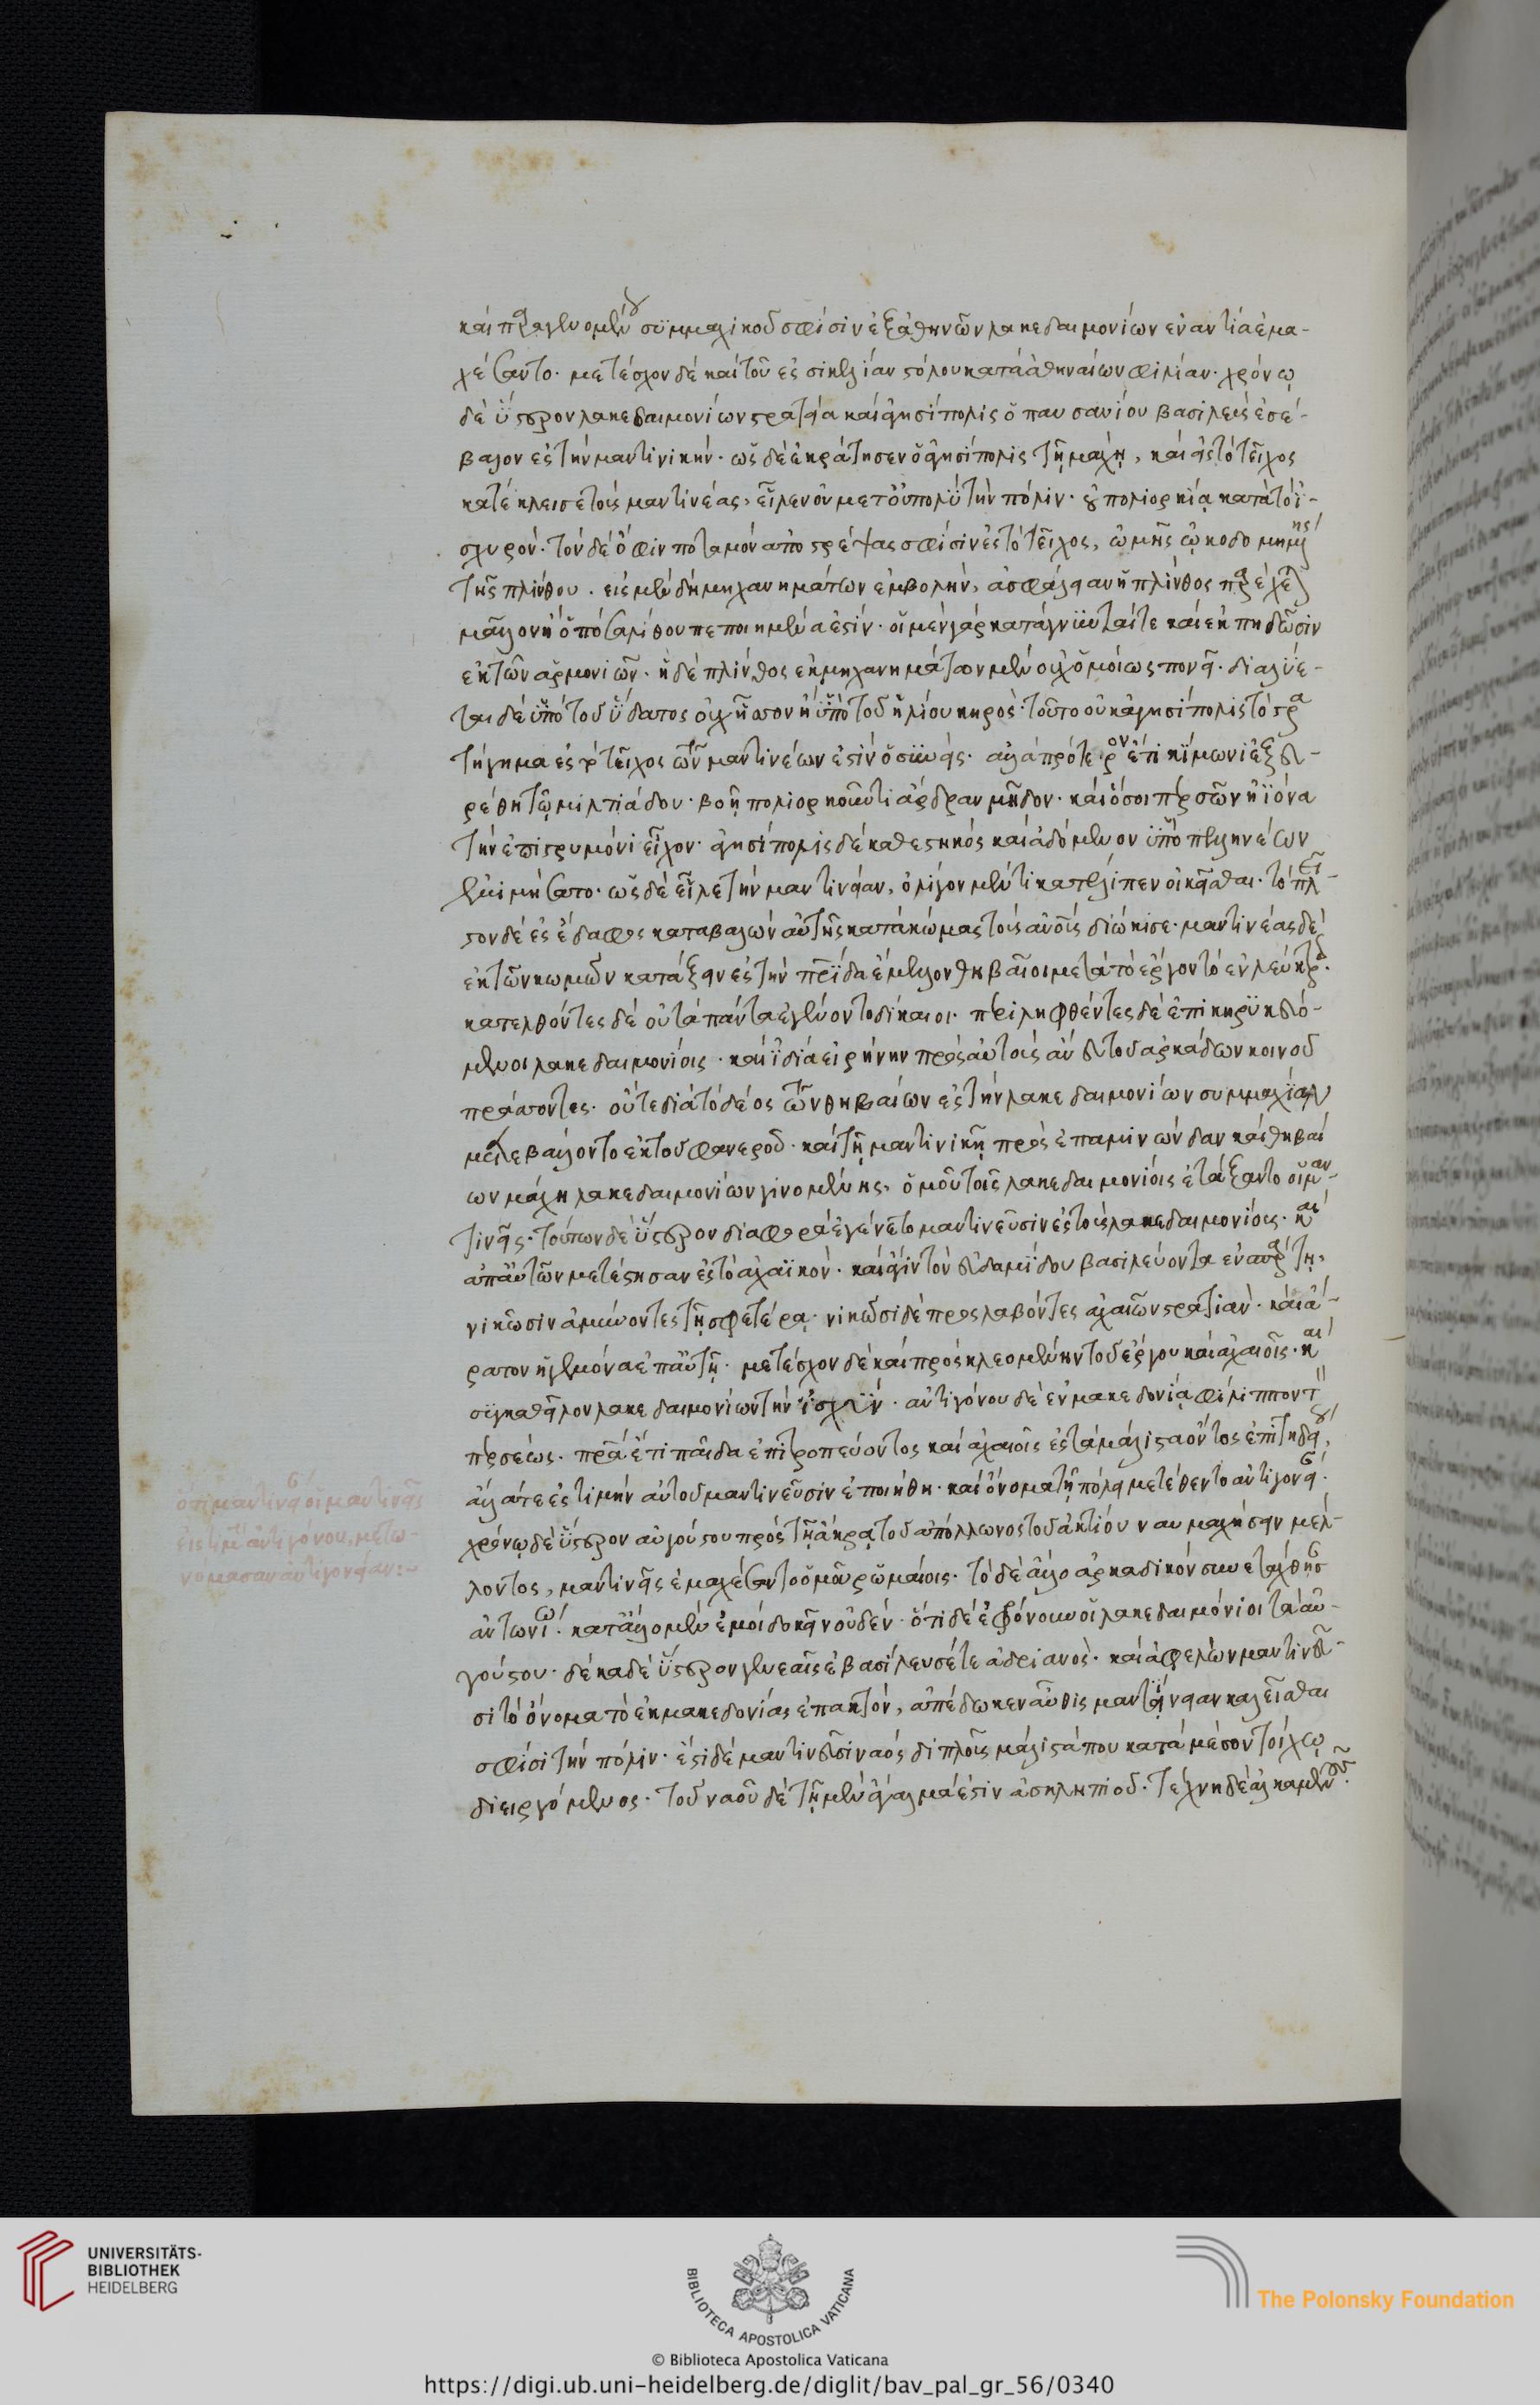 καὶ παραγενομένου συμμαχικοῦ σφίσιν ἐξ ἀθηνῶν λακεδαιμονίων ἐναντία ἐμα-
χέσαντο· μετέσχον δὲ καὶ τοῦ ἐς σικελίαν στόλου κατὰ ἀθηναίων φιλίαν· χρόνῳ
δὲ ὕστερον λακεδαιμονίων στρατεία καὶ ἀγησίπολις ὁ παυσανίου βασιλεὺς ἐσέ-
βαλον ἐς τὴν μαντινικήν· ὡς δὲ ἐκράτησεν ὁ ἀγησίπολις τῇ μάχῃ, καὶ ἐς τὸ τεῖχος
κατέκλεισε τοὺς μαντινέας, εἷλεν οὐ μετ' οὐ πολὺ τὴν πόλιν· οὐ πολιορκίᾳ κατὰ τὸ ἰ-
σχυρόν· τὸν δὲ ὄφιν ποταμὸν ἀποστρέψας σφίσιν ἐς τὸ τεῖχος, ὠμῆς ᾠκοδομημένης
τῆς πλίνθου. εἰς μὲν δὴ μηχανημάτων ἐμβολήν, ἀσφάλειαν ἡ πλίνθος παρέχεται
μᾶλλον ἢ ὁπόσα λίθου πεποιημένα ἐστίν· οἱ μὲν γὰρ κατάγνυνταί τε καὶ ἐκπηδῶσιν
ἐκ τῶν ἁρμονιῶν· ἡ δὲ πλίνθος ἐκ μηχανημάτων μὲν οὐχ ὁμοίως πονεῖ· διαλύε-
ται δὲ ὑπὸ τοῦ ὕδατος οὐχ ἧσσον ἢ ὑπὸ τοῦ ἡλίου κηρός· τοῦτο οὐκ ἀγησίπολις τὸ στρα
τήγημα ἐς τὸ τεῖχος τῶν μαντινέων ἐστὶν ὁ συνείς· ἀλλὰ πρότερον ἔτι κίμωνι ἐξευ-
ρέθη τῷ μιλτιάδου· βοῇ πολιορκοῦντι ἄρδραν μῆδον· καὶ ὅσοι περσῶν ἠϊόνα
τὴν ἐπὶ στρυμόνι εἶχον· ἀγησίπολις δὲ καθεστηκὸς καὶ ἀδόμενον ὑπὸ πελληνέων
ἐμιμήσατο· ὡς δὲ εἷλε τὴν μαντίνειαν, ὀλίγον μέν τι κατέλιπεν οἰκεῖσθαι· τὸ πλεῖ-
στον δὲ ἐς ἔδαφος καταβαλὼν αὐτῆς κατὰ κώμας τοὺς ἀνοὺς διῴκισε· μαντινέας δὲ
ἐκ τῶν κωμῶν κατάξειν ἐς τὴν πρίδα ἔμελλον θηβαῖοι μετὰ τὸ ἔργον τὸ ἐν λεύκτροις.
κατελθόντες δὲ οὐ τὰ πάντα ἐγένοντο δίκαιοι· περιληφθέντες δὲ ἐπικηρυκευό-
μενοι λακεδαιμονίοις· καὶ ἰδίᾳ εἰρήνην πρὸς αὐτοὺς ἄνευ τοῦ ἀρκάδων κοινοῦ
πράσσοντες· οὕτε διὰ τὸ δέος τῶν θηβαίων ἐς τὴν λακεδαιμονίων συμμαχίαν
μετεβάλλοντο ἐκ τοῦ φανεροῦ· καὶ τῇ μαντινικῇ πρὸς ἐπαμινώνδαν καὶ θηβαί
ων μάχῃ λακεδαιμονίων γινομένης, ὁμοῦ τοῖς λακεδαιμονίοις ἐτάξαντο οἱ μαν-
τινεῖς· τούτων δὲ ὕστερον διαφορὰ ἐγένετο μαντινεῦσιν ἐς τοὺς λακεδαιμονίους· καὶ
ἀπ' αὐτῶν μετέστησαν ἐς τὸ ἀχαϊκόν· καὶ ἆγιν τὸν εὐδαμίδου βασιλεύοντα ἐν σπάρτῃ,
νικῶσιν ἀμύνοντες τῇ σφετέρᾳ· νικῶσι δὲ προσλαβόντες ἀχαιῶν στρατιάν· καὶ ἄ-
ρατον ἡγεμόνα ἐπ' αὐτῇ· μετέσχον δὲ καὶ πρὸς κλεομένην τοῦ ἔργου καὶ ἀχαιοῖς· καὶ
συγκαθεῖλον λακεδαιμονίων τὴν ἰσχύν· ἀντιγόνου δὲ ἐν μακεδονίᾳ φίλιππον τὸν
περσέως· πρᾶ ἔτι παῖδα ἐπιτροπεύοντος καὶ ἀχαιοῖς ἐς τὰ μάλιστα ὄντος ἐπιτηδείου,
ἄλλα τε ἐς τιμὴν αὐτοῦ μαντινεῦσιν ἐποιήθη· καὶ ὄνομα τῇ πόλει μετέθεντο ἀντιγόνειαν·
χρόνῳ δὲ ὕστερον αὐγούστου πρὸς τῇ ἄκρᾳ τοῦ ἀπόλλωνος τοῦ ἀκτίου ναυμαχήσειν μέλ-
λοντος, μαντινεῖς ἐμαχέσαντο ὁμοῦ ῥωμαίοις· τὸ δὲ ἄλλο ἀρκαδικὸν συνετάχθησαν
ἀντωνίῳ· κατ' ἄλλο μὲν ἐμοὶ δοκεῖν οὐδέν· ὅτι δὲ ἐφρόνουν οἱ λακεδαιμόνιοι τὰ αὐ-
γούστου· δέκα δὲ ὕστερον γενεαῖς ἐβασίλευσέ τε ἀδριανός· καὶ ἀφελὼν μαντινεῦ-
σι τὸ ὄνομα τὸ ἐκ μακεδονίας ἐπακτόν, ἀπέδωκεν αὖθις μαντίνειαν καλεῖσθαι
σφίσι τὴν πόλιν· ἔστι δὲ μαντινεῦσι ναὸς διπλοῦς μάλιστά που κατὰ μέσον τοίχῳ
διειργόμενος· τοῦ ναοῦ δὲ τῇ μὲν ἄγαλμά ἐστιν ἀσκληπιοῦ· τέχνη δὲ ἀλκαμένους·
ὅτι μαντίνειαν οἱ μαντινεῖς
εἰς τιμὴν ἀντιγόνου, μετω-
νόμασαν ἀντιγόνειαν:~
UNIVERSITÄTS-
BIBLIOTHEK
HEIDELBERG
BIBLIOTECA APOSTOLICA VATICANA
The Polonsky Foundation
© Biblioteca Apostolica Vaticana
https://digi.ub.uni-heidelberg.de/diglit/bav_pal_gr_56/0340